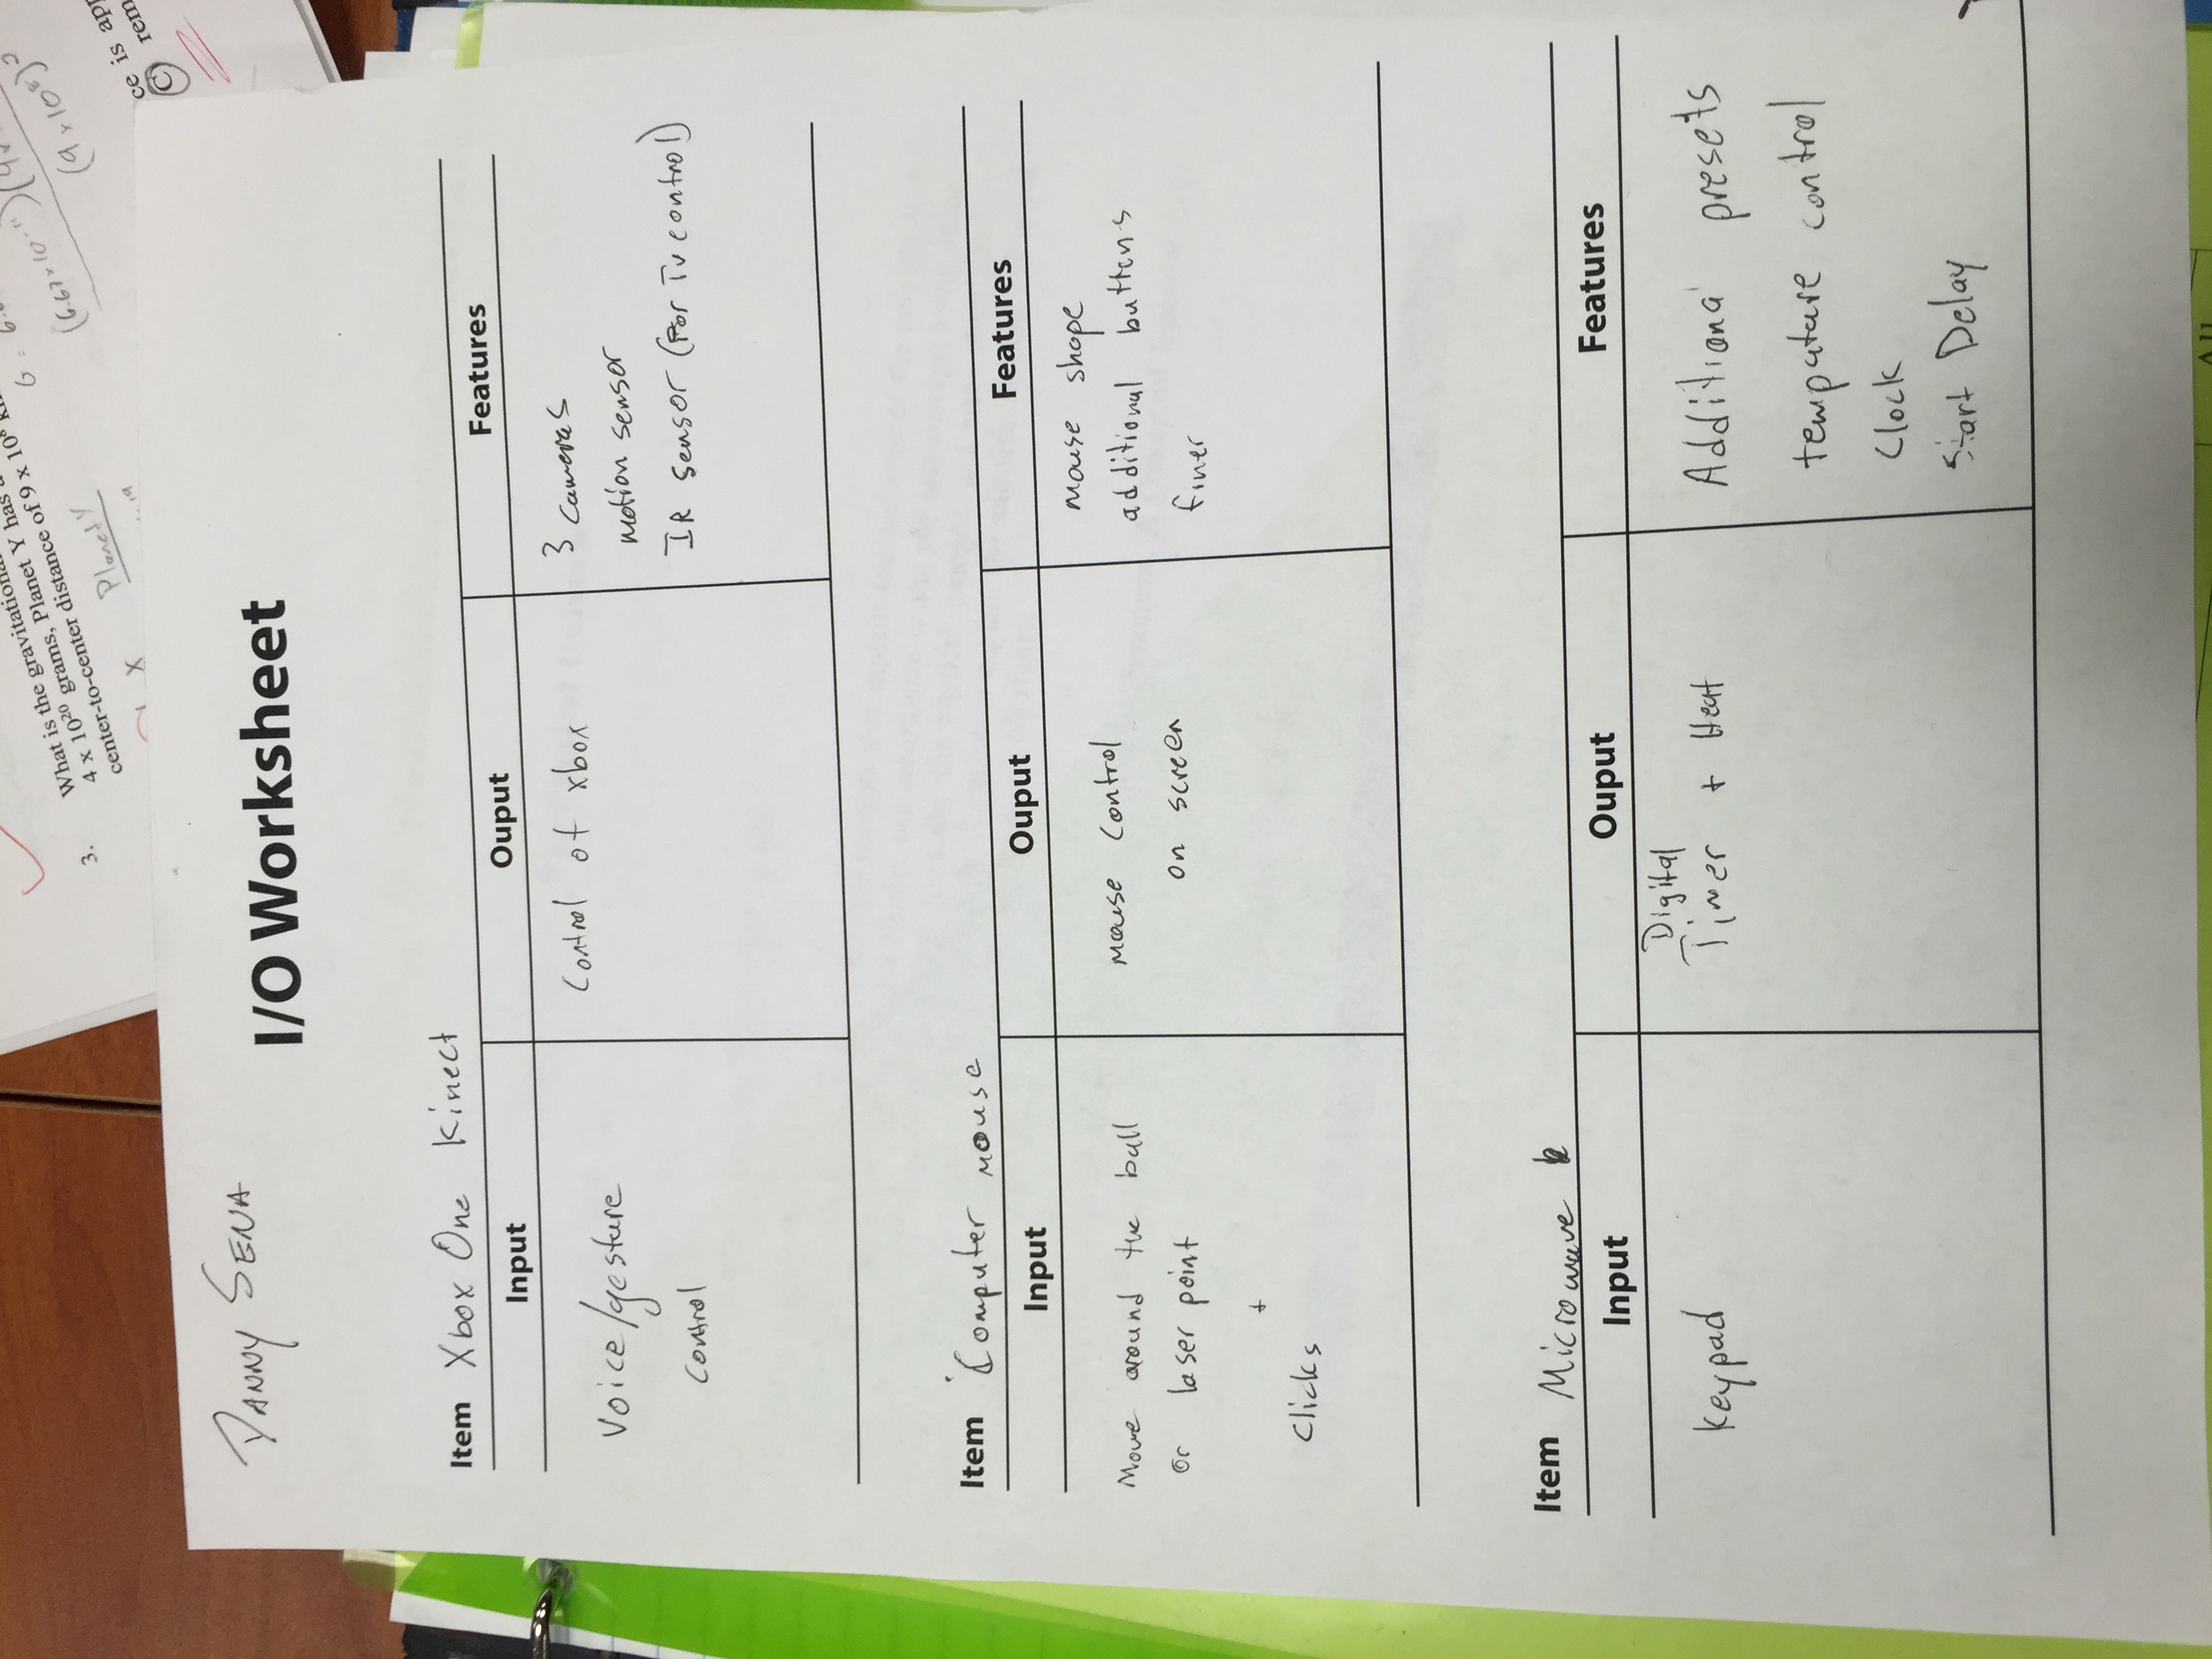 3. What is the gravitational
4 x 10²⁰ grams, Planet Y has
center-to-center distance of 9 x 10⁸
G =
(6.67 x 10⁻¹¹)(4
(9 x 10⁸)²
X
Planet Y
ce is app
C rem
DANNY SENA
I/O Worksheet
Item Xbox One Kinect
Input
Ouput
Features
Voice/gesture
control
Control of xbox
3 cameras
motion sensor
IR sensor (For Tv control)
Item Computer mouse
Input
Ouput
Features
Move around the ball
or laser point
+
Clicks
mouse control
on screen
mouse shape
additional buttons
finer
Item Microwave
Input
Ouput
Features
Keypad
Digital
Timer + Heat
Additional presets
tempature control
Clock
Start Delay
All